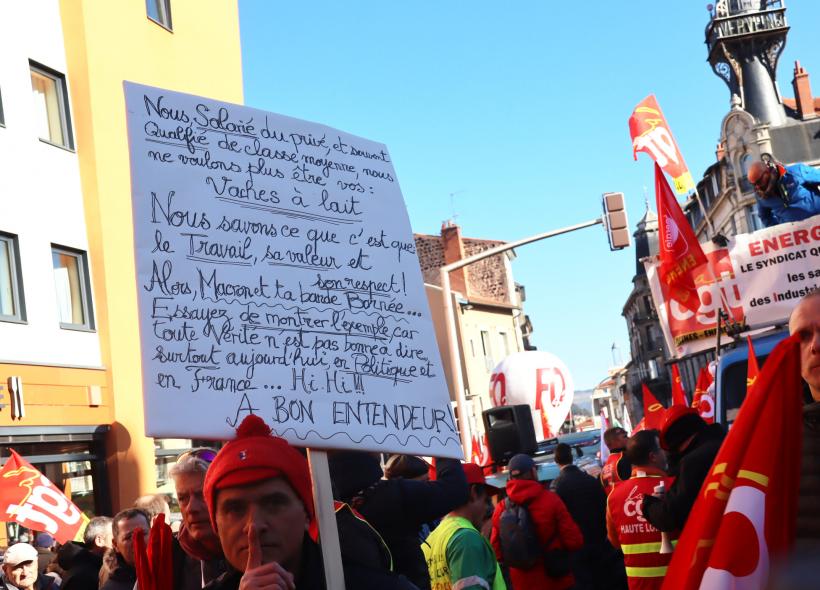 Nous Salarié du privé, et souvent
Qualifié de classe moyenne, nous
ne voulons plus être, vos :
Vaches à lait
Nous savons ce que c'est que
le Travail, sa valeur et
son respect!
Alors, Macron et ta bande Bornée...
Essayez de montrer l'exemple, car
toute Vérité n'est pas bonne à dire,
surtout aujourd'hui, en Politique et
en France... Hi. Hi!!!
A BON ENTENDEUR
cgt
VERVEINE
ENERG
LE SYNDICAT QU
cgt
les sa
des Industri
MINES-ENER
FO
cgt
cgt
HAUTE LO